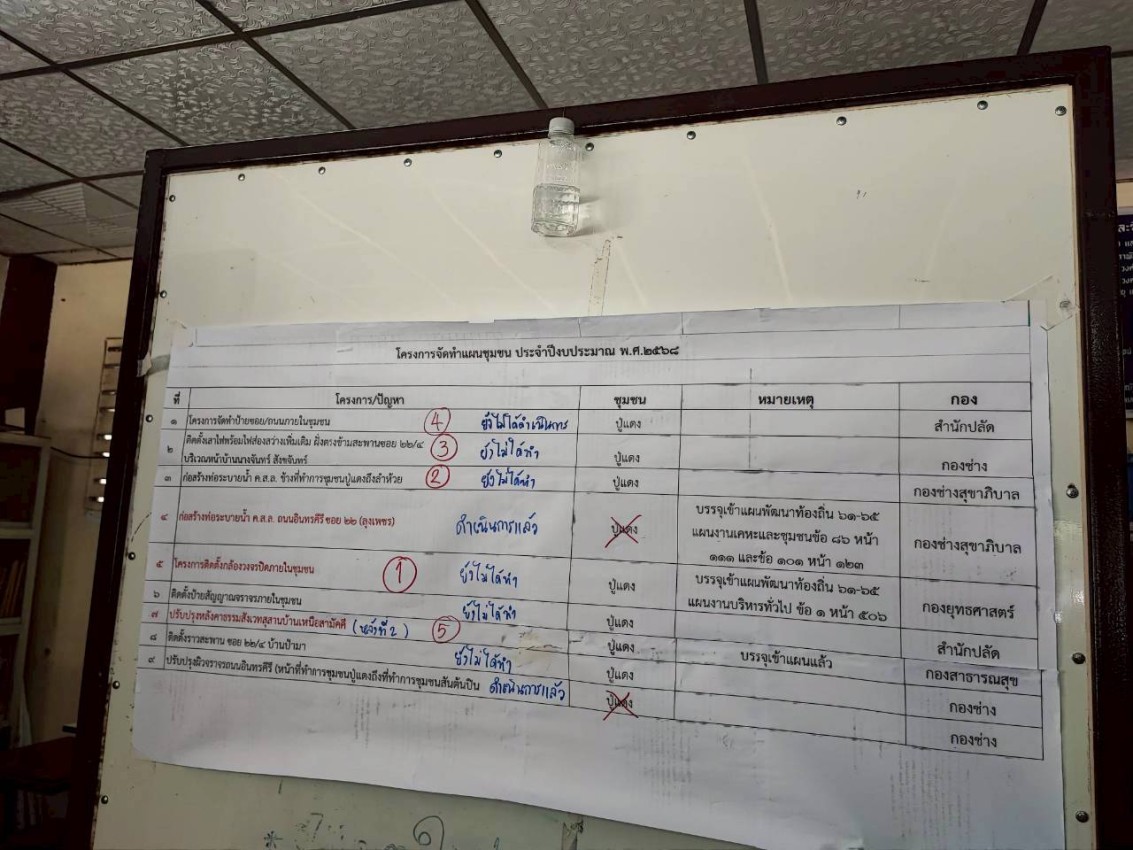 โครงการจัดทำแผนชุมชน ประจำปีงบประมาณ พ.ศ.๒๕๖๘
ที่ โครงการ/ปัญหา ชุมชน หมายเหตุ กอง
๑ โครงการจัดทำป้ายซอย/ถนนภายในชุมชน ④ ยังไม่ได้ดำเนินการ ปู่แดง สำนักปลัด
๒ ติดตั้งเสาไฟพร้อมไฟส่องสว่างเพิ่มเติม ฝั่งตรงข้ามสะพานซอย ๒๒/๔ ③ ยังไม่ได้ทำ ปู่แดง กองช่าง
บริเวณหน้าบ้านนางจันทร์ สังขจันทร์
๓ ก่อสร้างท่อระบายน้ำ ค.ส.ล. ข้างที่ทำการชุมชนปู่แดงถึงลำห้วย ② ยังไม่ได้ทำ ปู่แดง กองช่างสุขาภิบาล
๔ ก่อสร้างท่อระบายน้ำ ค.ส.ล. ถนนอินทรคีรี ซอย ๒๒ (ลุงเพชร) ดำเนินการแล้ว ปู่แดง บรรจุเข้าแผนพัฒนาท้องถิ่น ๖๑-๖๕ กองช่างสุขาภิบาล
แผนงานเคหะและชุมชนข้อ ๘๖ หน้า
๑๑๑ และข้อ ๑๐๑ หน้า ๑๒๓
๕ โครงการติดตั้งกล้องวงจรปิดภายในชุมชน ① ยังไม่ได้ทำ ปู่แดง บรรจุเข้าแผนพัฒนาท้องถิ่น ๖๑-๖๕ กองยุทธศาสตร์
แผนงานบริหารทั่วไป ข้อ ๑ หน้า ๕๐๖
๖ ติดตั้งป้ายสัญญาณจราจรภายในชุมชน ยังไม่ได้ทำ ปู่แดง สำนักปลัด
๗ ปรับปรุงหลังคาธรรมสังเวทสุสานบ้านเหนือสามัคคี (หลังที่ 2) ⑤ ปู่แดง บรรจุเข้าแผนแล้ว กองสาธารณสุข
๘ ติดตั้งราวสะพาน ซอย ๒๒/๔ บ้านป้ามา ยังไม่ได้ทำ ปู่แดง กองช่าง
๙ ปรับปรุงผิวจราจรถนนอินทรคีรี (หน้าที่ทำการชุมชนปู่แดงถึงที่ทำการชุมชนสันต้นปิน ดำเนินการแล้ว ปู่แดง กองช่าง